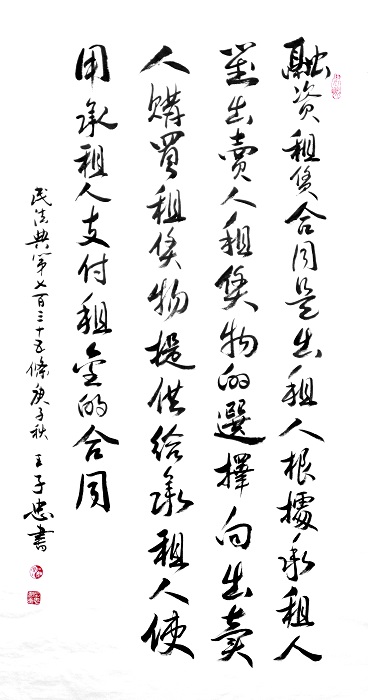 融资租赁合同是出租人根據承租人
對出賣人租赁物的選擇向出賣
人購買租赁物提供给承租人使
用承租人支付租金的合同
民法典第七百三十五條庚子秋王子忠書